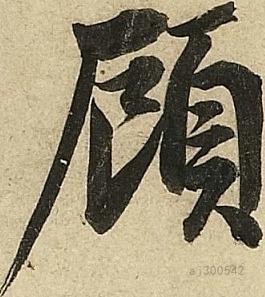 顧
aj300542